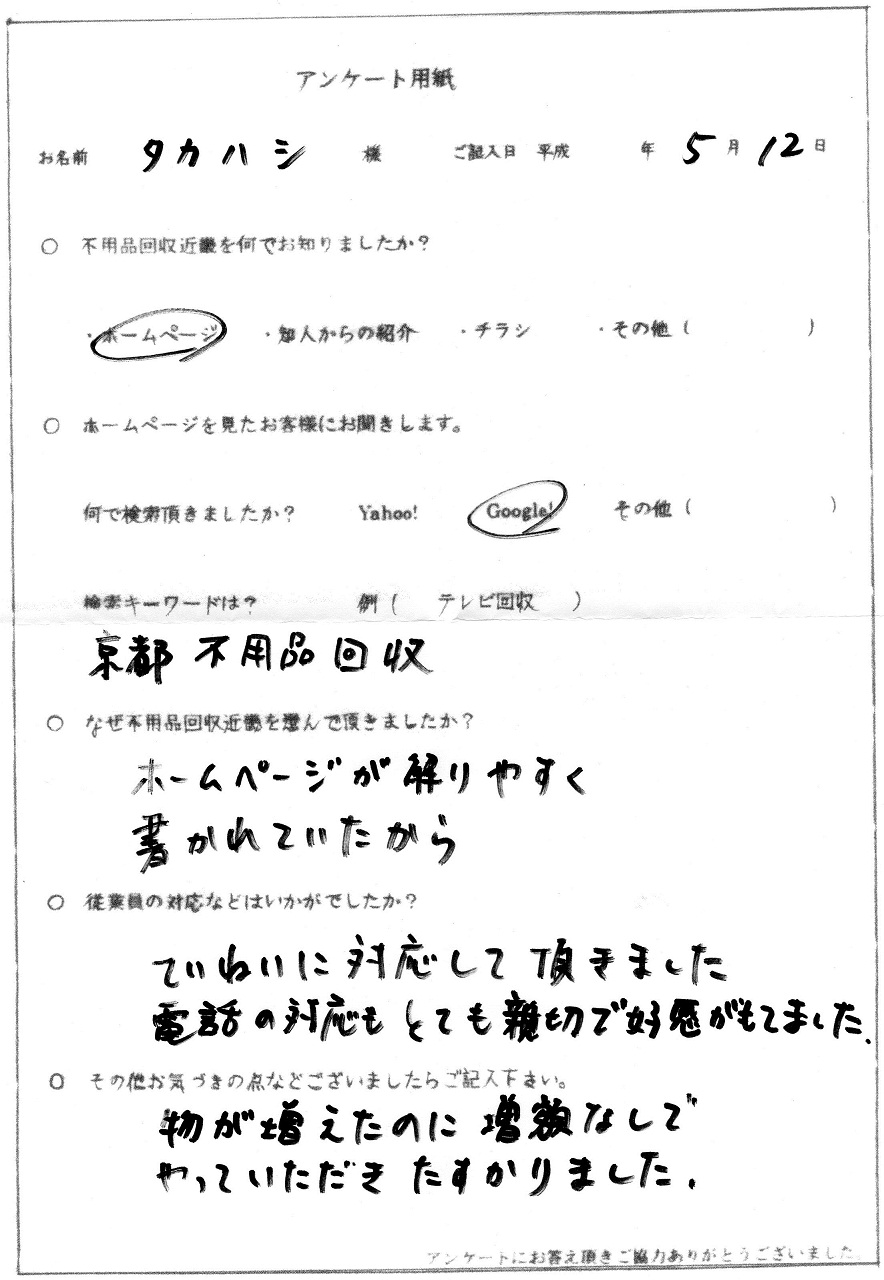 アンケート用紙
お名前 タカハシ 様 ご記入日 平成 年 5月 12日
○ 不用品回収近畿を何でお知りましたか？
・ホームページ ・知人からの紹介 ・チラシ ・その他（ ）
○ ホームページを見たお客様にお聞きします。
何で検索頂きましたか？ Yahoo! Google! その他（ ）
検索キーワードは？ 例（ テレビ回収 ）
京都 不用品回収
○ なぜ不用品回収近畿を選んで頂きましたか？
ホームページが解りやすく
書かれていたから
○ 従業員の対応などはいかがでしたか？
ていねいに対応して頂きました
電話の対応もとても親切で好感がもてました.
○ その他お気づきの点などございましたらご記入下さい。
物が増えたのに増額なしで
やっていただきたすかりました.
アンケートにお答え頂きご協力ありがとうございました。